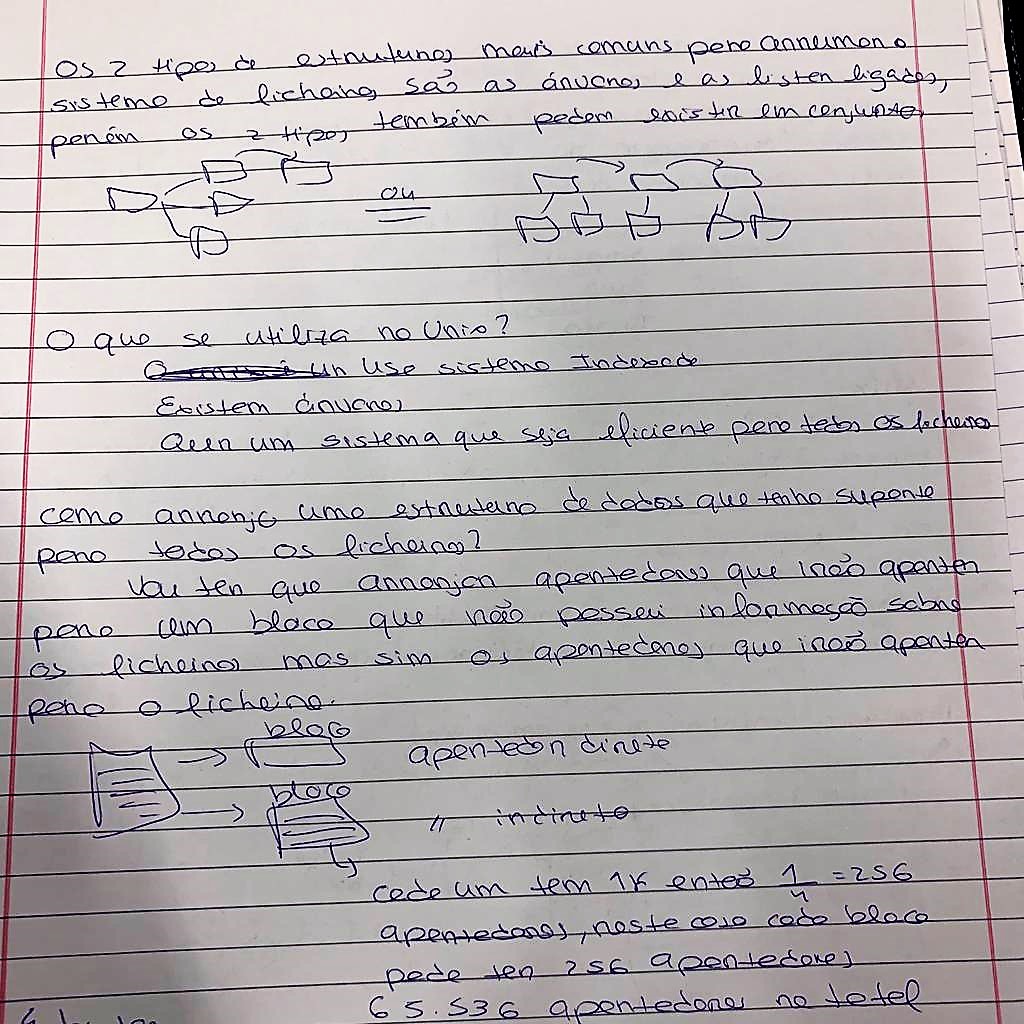 Os 2 tipos de estruturas mais comuns para arrumar o
sistema de ficheiros são as árvores e as listas ligadas,
porém os 2 tipos também podem existir em conjunto
ou
O que se utiliza no Unix?
um Usa sistema Indexado
Existem árvores
Quer um sistema que seja eficiente para todos os ficheiros
Como arranjo uma estrutura de dados que tenha suporte
para todos os ficheiros?
Vou ter que arranjar apontadores que irão apontar
para um bloco que não possui informação sobre
os ficheiros mas sim os apontadores que irão apontar
para o ficheiro.
bloco
apontador direto
bloco
" indireto
cada um tem 1K então 1/4 = 256
apontadores, neste caso cada bloco
pode ter 256 apontadores
65.536 apontadores no total